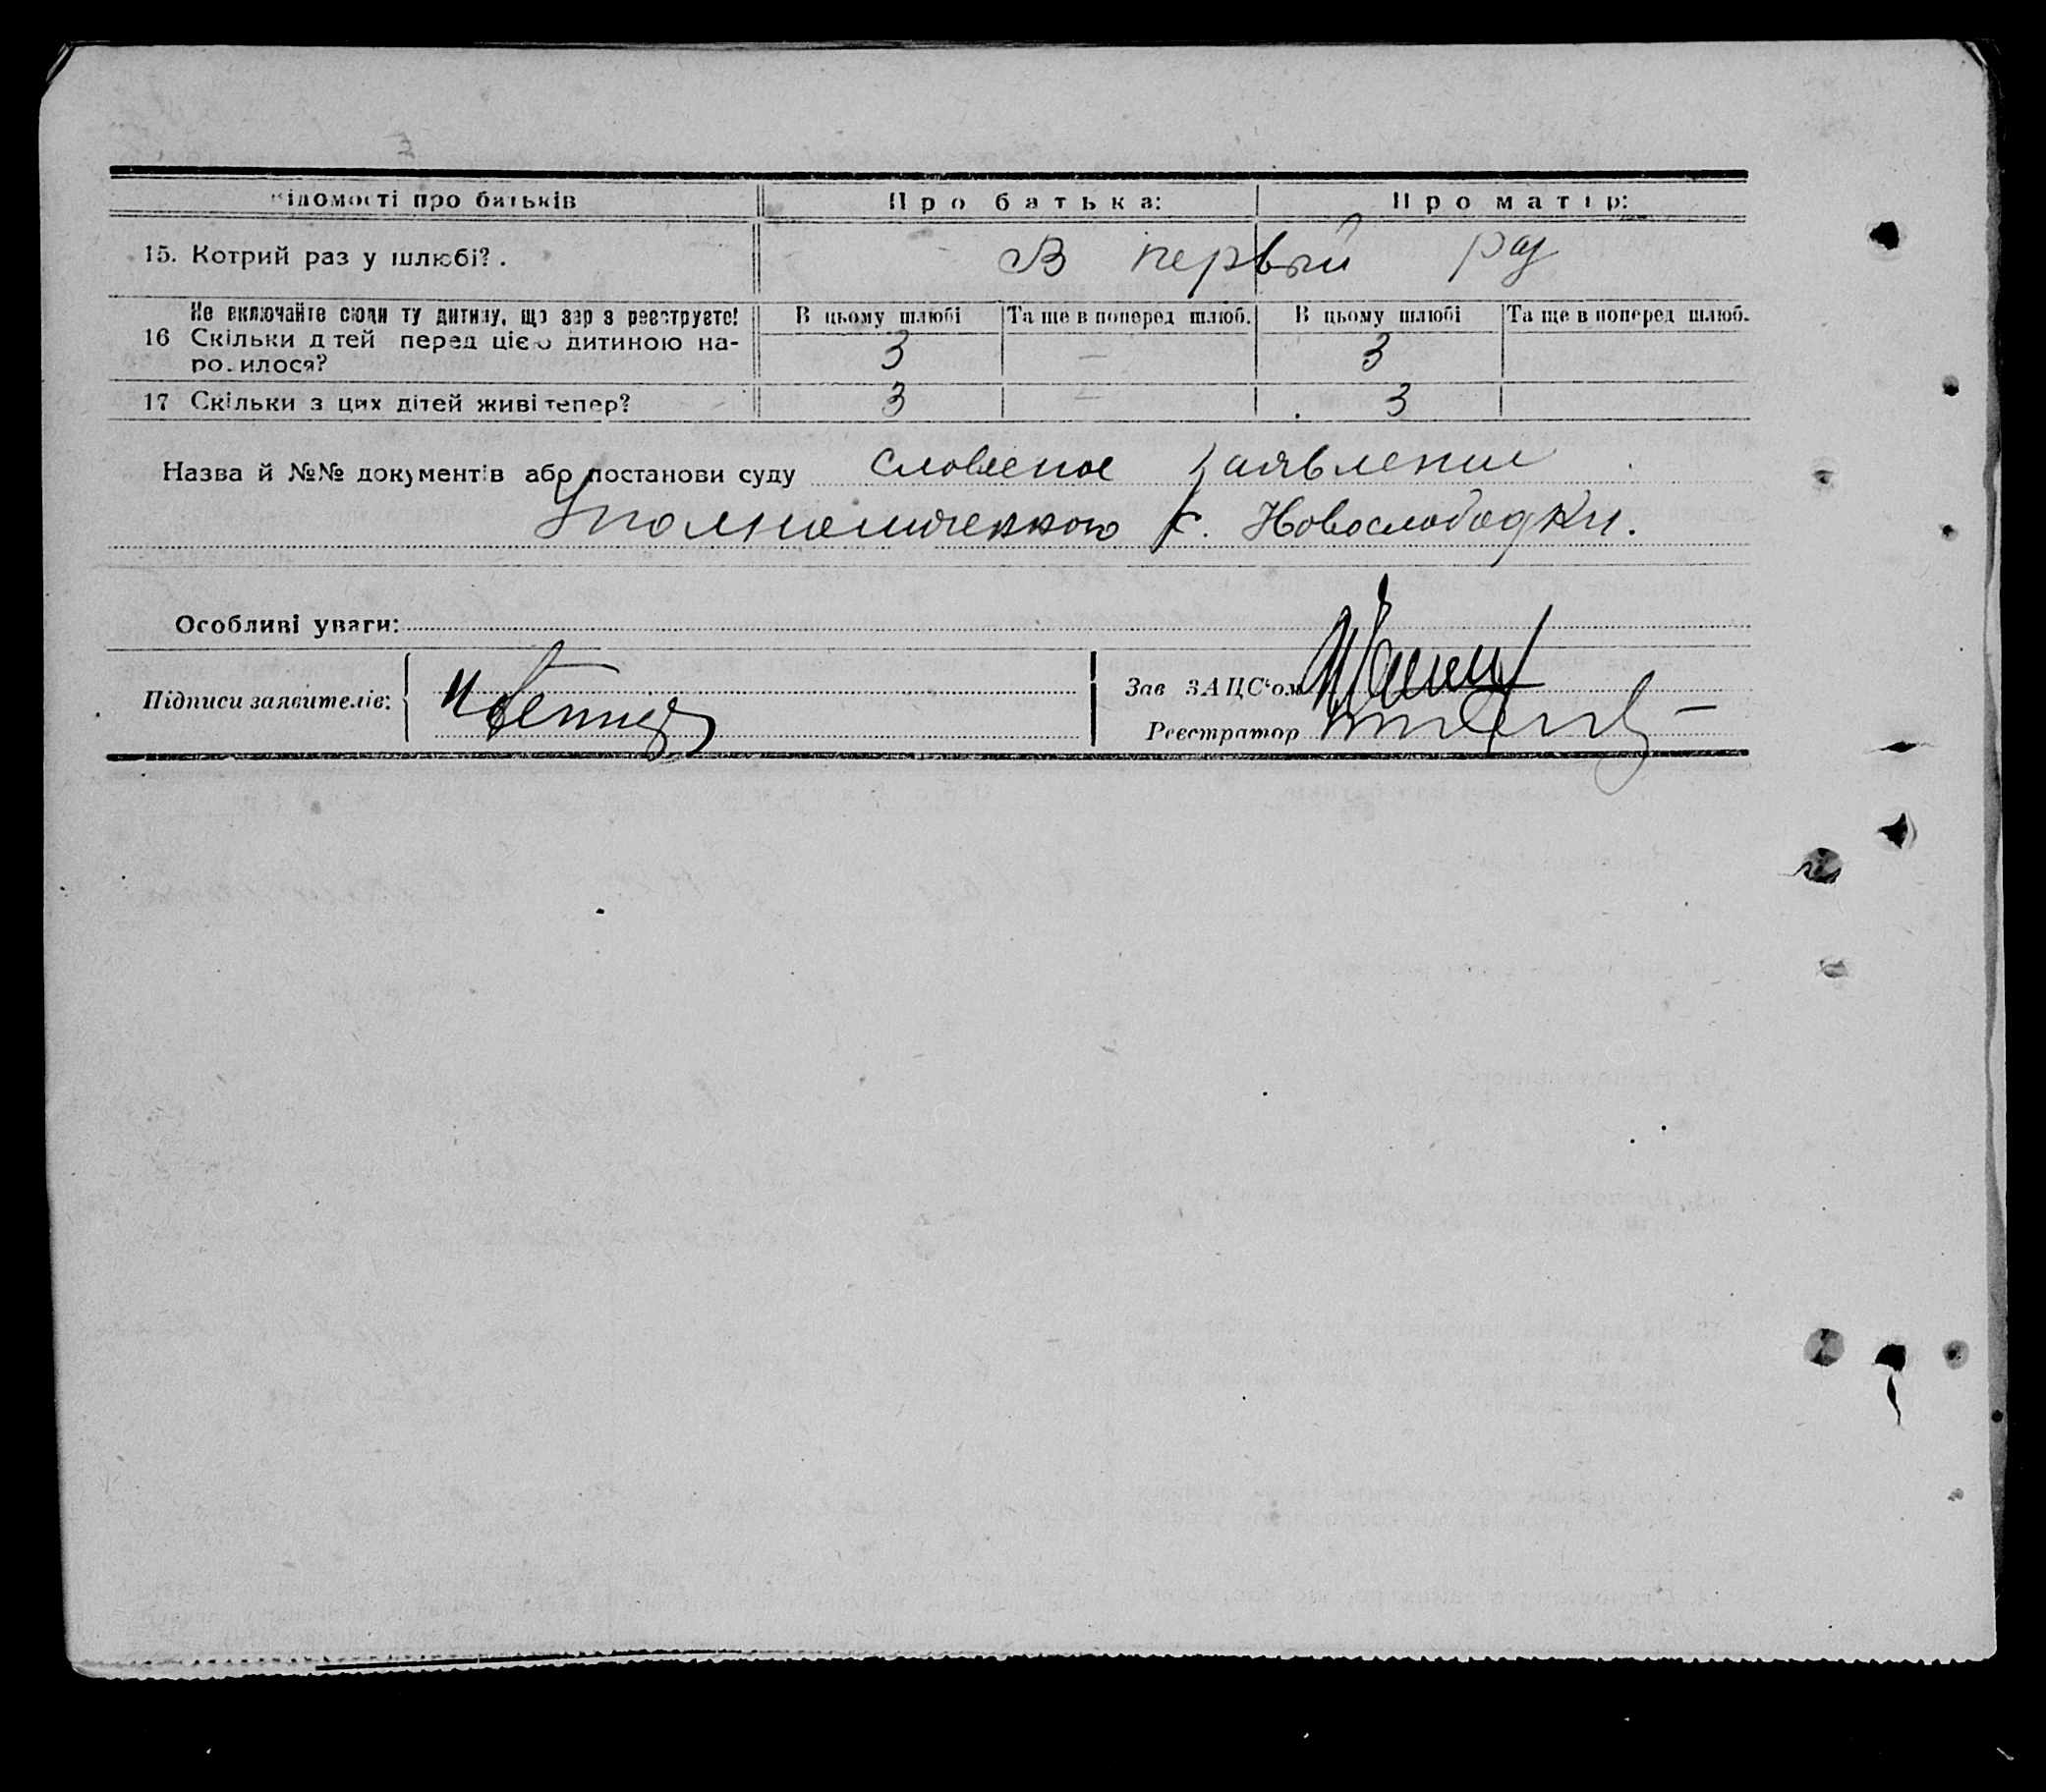 Відомості про батьків Про батька: Про матір:
15. Котрий раз у шлюбі? . В первый раз
Не включайте сюди ту дитину, що зараз реєструєте! В цьому шлюбі Та ще в поперед шлюб. В цьому шлюбі Та ще в поперед шлюб.
16 Скільки дітей перед цією дитиною на- 3 — 3
родилося?
17 Скільки з цих дітей живі тепер? 3 — 3
Назва й №№ документів або постанови суду словесное заявление
Уполномоченного с. Новослободки.
Особливі уваги:
Підписи заявителів: Зав ЗАЦС'ом
Реєстратор